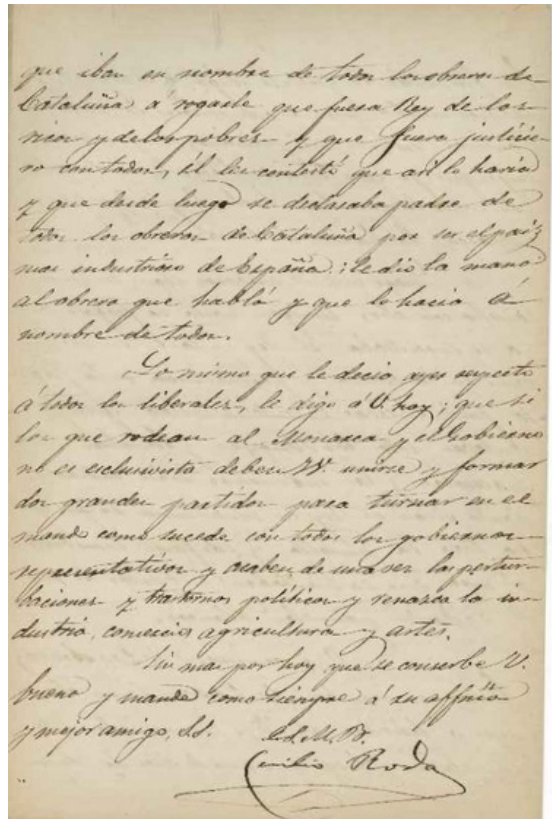 que iban en nombre de todos los obreros de
Cataluña á rogarle que fuera Rey de los
ricos y de los pobres y que fuera justicie-
ro con todos, él les contestó que así lo haria
y que desde luego se declaraba padre de
todos los obreros de Cataluña por ser el pais
mas industrioso de España; le dio la mano
al obrero que habló y que lo hacia á
nombre de todos.
Lo mismo que le decia ayer respecto
á todos los liberales, le digo á V. hoy; que si
los que rodean al Monarca y el Gobierno
no es esclusivista deben VV. unirse y formar
dos grandes partidos para turnar en el
mando como sucede con todos los gobiernos
representativos y acaben de una vez las pertur-
baciones y trastornos políticos y renazca la in-
dustria, comercio, agricultura y artes.
Sin mas por hoy que se conserbe V.
bueno y mande como siempre á su affmo
y mejor amigo, S.S.
Q.S.M.B.
Cecilio Roda